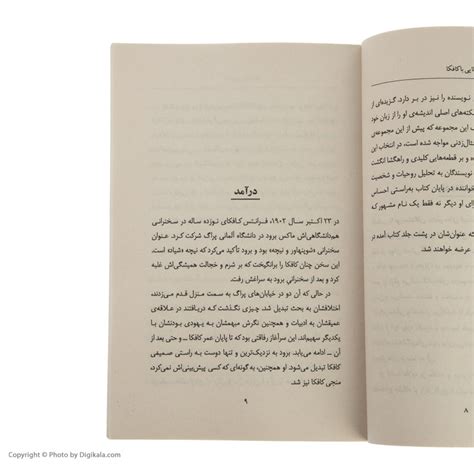 درآمد
در ۲۳ اکتبر سال ۱۹۰۲، فرانتس کافکای نوزده ساله در سخنرانی
هم‌دانشگاهی‌اش ماکس برود در دانشگاه آلمانی پراگ شرکت کرد. عنوان
سخنرانی «شوپنهاور و نیچه» بود و برود تأکید می‌کرد که نیچه «شیاد» است.
این سخن چنان کافکا را برانگیخت که بر شرم و خجالت همیشگی‌اش غلبه
کرد و بعد از سخنرانی برود به سراغش رفت.
در حالی که آن دو در خیابان‌های پراگ به سمت منزل قدم می‌زدند،
اختلافشان به بحث تبدیل شد. چیزی نگذشت که دریافتند در علاقه‌ی
عمیقشان به ادبیات و همچنین نگرش مبهمشان به یهودی بودنشان با
یکدیگر سهیم‌اند. این سرآغاز رفاقتی بود که تا پایان عمر کافکا ــ و حتی بعد از
آن ــ ادامه می‌یابد. برود به نزدیک‌ترین و تنها دوست به راستی صمیمی
کافکا تبدیل می‌شود. او همچنین، به گونه‌ای که کسی پیش‌بینی‌اش نمی‌کرد،
منجی کافکا نیز شد.
۹
نایی با کافکا
نویسنده را نیز در بر دارد. گزیده‌ای از
نکته‌های اصلی اندیشه‌ی او را از زبان خود
این مجموعه که پیش از این مجموعه‌ی
مثال‌زدنی مواجه شده است. در انتخاب این
و بر قطعه‌هایی کلیدی و راهگشا انگشت
نویسندگان به تحلیل روحیات و شخصیت
خواننده در پایان کتاب به‌راستی احساس
ای او دیگر نه فقط یک نام مشهور که
که عنوان‌شان در پشت جلد کتاب آمده
عرضه خواهند شد.
۸
Copyright © Photo by Digikala.com